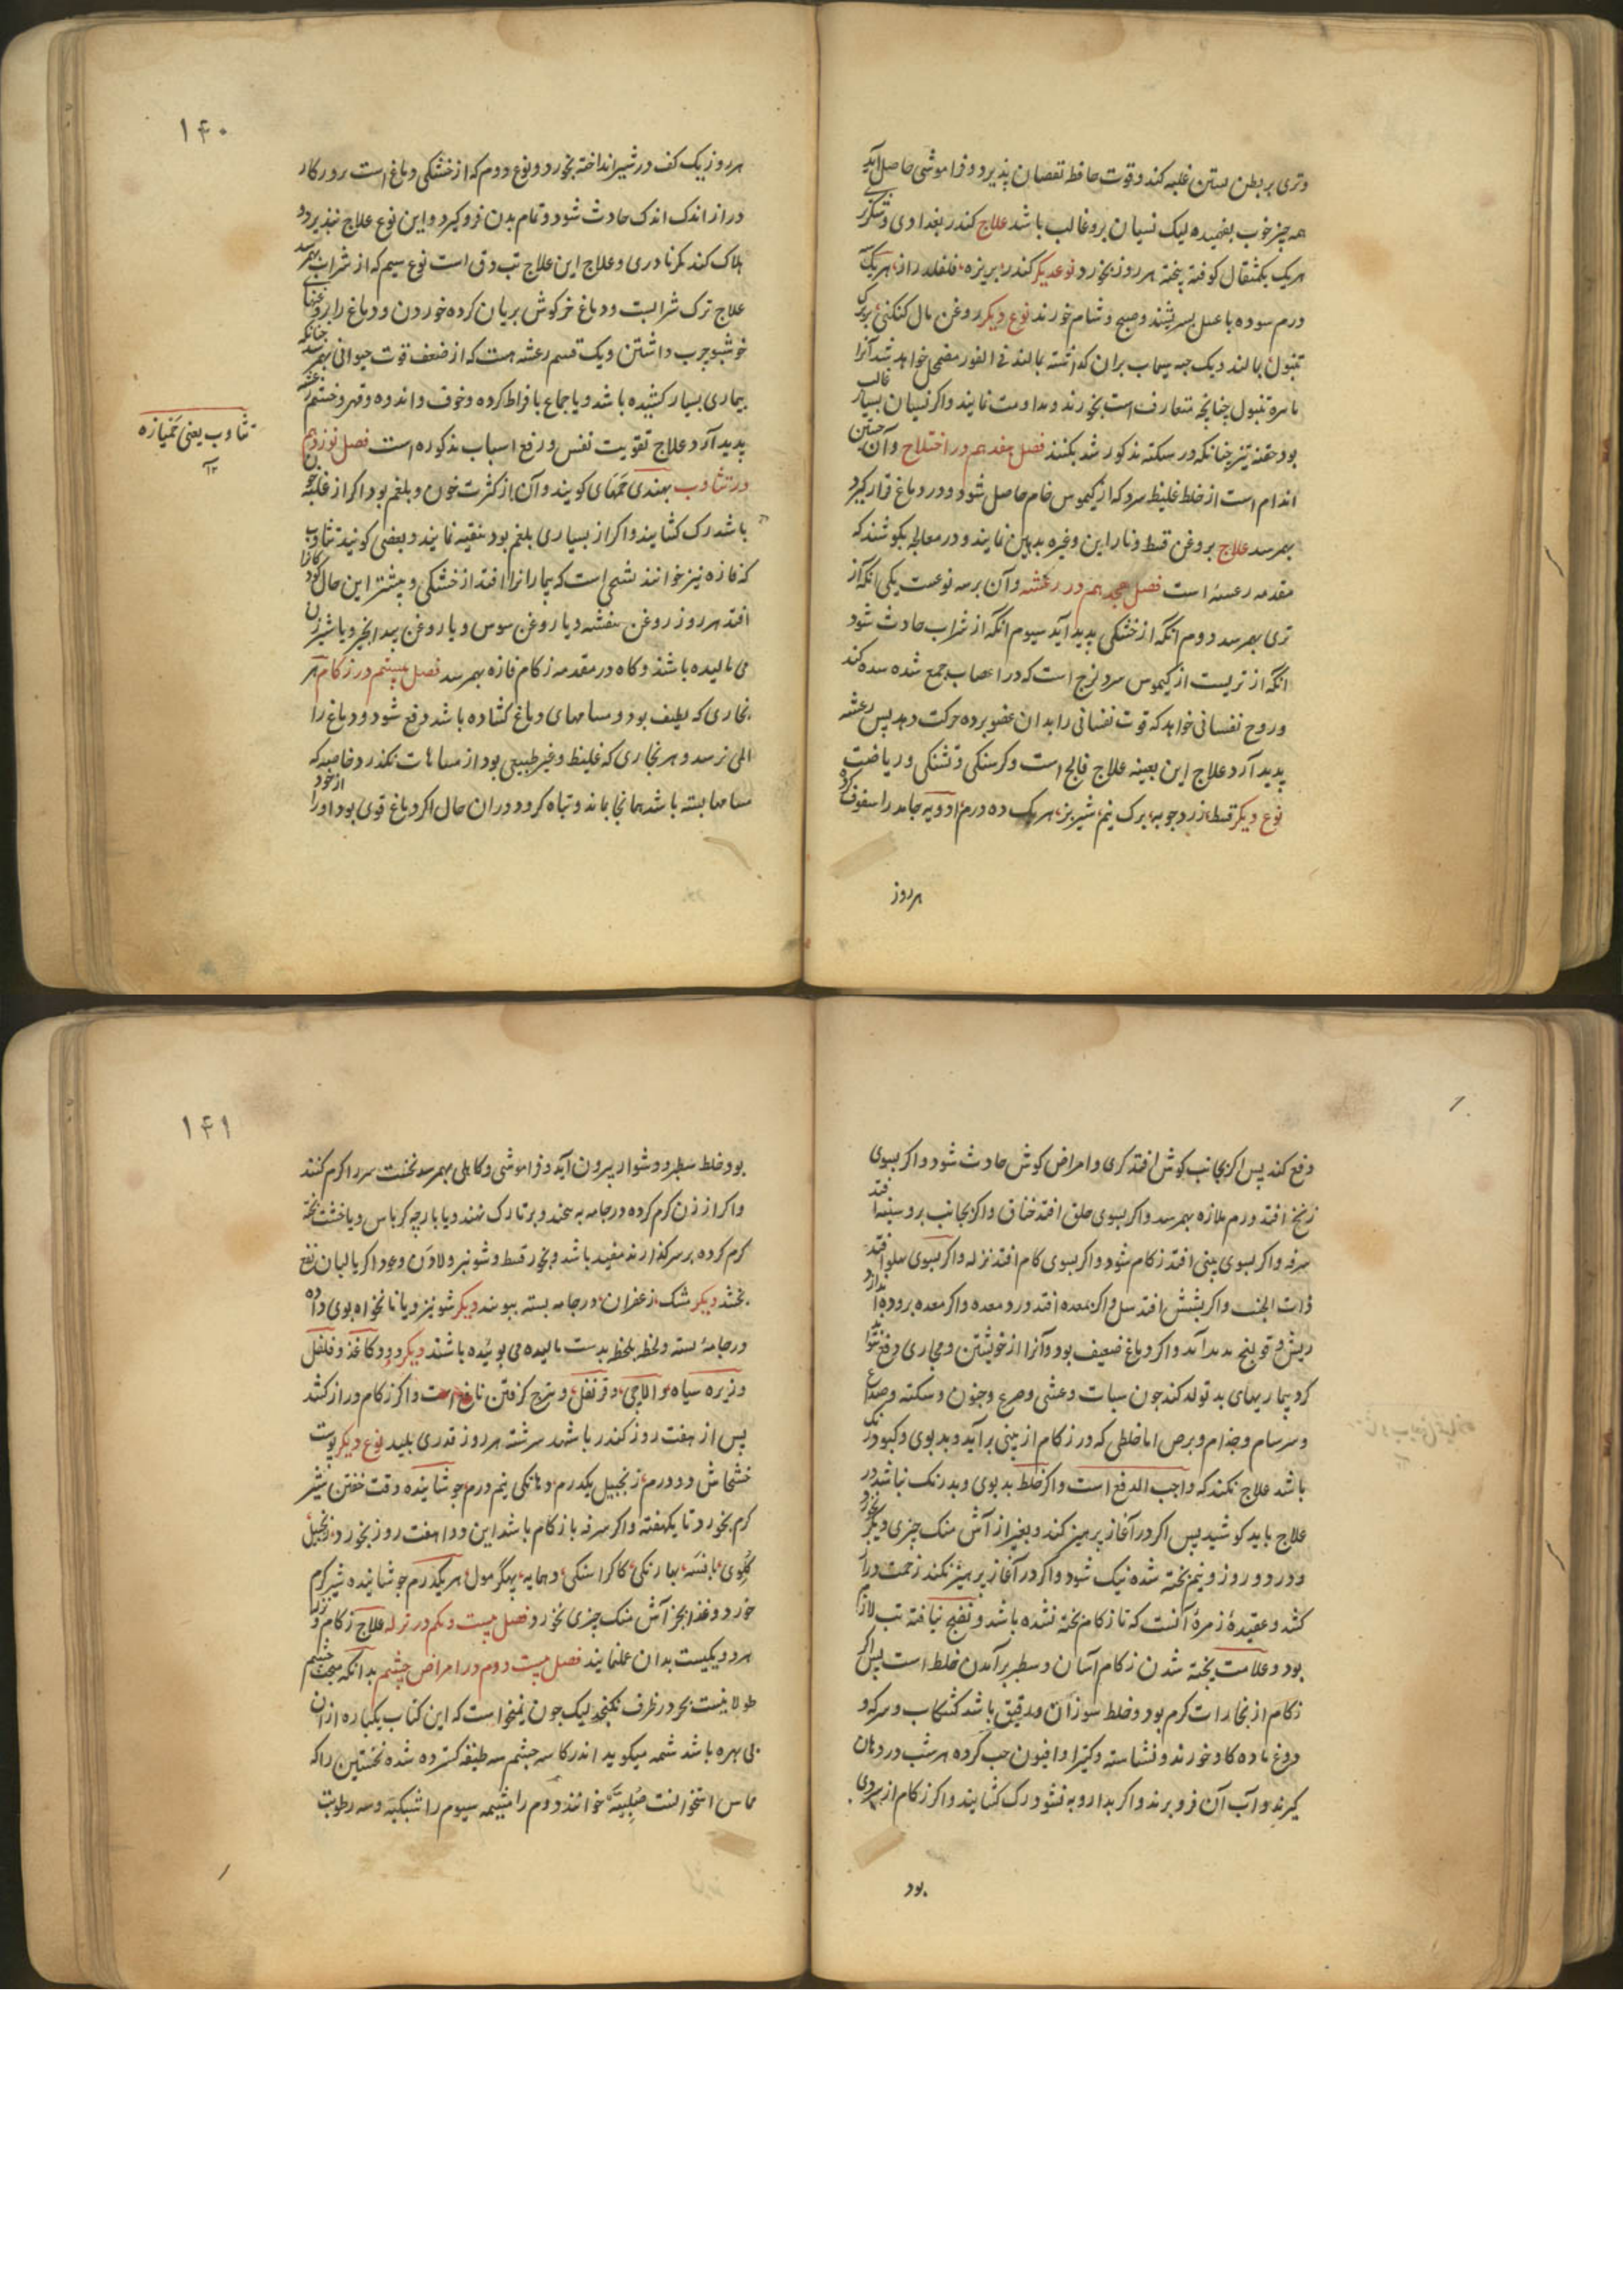 وتری بر بطن پسین غلبه کند وقوت حافظ نقصان پذیرد وفراموشی حاصل آید
همه چیز خوب بفهمیده لیک نسیان برو غالب باشد علاج کندر بغدادی وشکر
هریک یکمثقال کوفته پخته هر روز بخورد نوعدیکر کندر زیره فلفلدراز هریک
درم سوده با عسل بسریشند وصبح وشام خورند نوع دیکر روغن مال کنکنی بر برک
تنبول بمالند ویک حبه سیماب بران کذاشته بمالند فی الفور مضمحل خواهد شد آنرا
با سره تنبول چنانچه متعارف است بخورند ومداومت نمایند واکر نسیان بسیار غالب
بود حقنه تیز چنانکه در سکته مذکور شد بکنند فصل هفدهم در اختلاج وآن جستن
اندام است از خلط غلیظ سرد که از کیموس خام حاصل شود ودر دماغ قرار کیرد
بهم رسد علاج بروغن قسط ونار این وغیره تدهین نمایند ودر معالجه بکوشند که
مقدمه رعشهٔ است فصل هجدهم در رعشه وآن بر سه نوعست یکی انکه از
تری بهم رسد دوم انکه از خشکی پدید آید سیوم انکه از شراب حادث شود
انکه از تریست از کیموس سرد لزج است که در اعصاب جمع شده سده کند
وروح نفسانی خواهد که قوت نفسانی را بدان عضو برده حرکت دهد پس رعشه
پدید آرد علاج این بعینه علاج فالج است وکرسنکی وتشنکی وریاضت
نوع دیکر قسط زردچوبه برک نیم شیر بز هریک ده درم ادویه جامد را سفوف کرده
هر روز
۱۴۰
هر روز یک کف در شیر انداخته بخورد ونوع دوم که از خشکی دماغ است بروز کار
دراز اندک اندک حادث شود وتمام بدن فرو کیرد واین نوع علاج نپذیرد ودر
هلاک کند مکر نادری وعلاج این علاج تب دق است نوع سیم که از شراب بهم رسد
علاج ترک شرابست ودماغ خرکوش بریان کرده خوردن ودماغ را بروغنهای
خوشبو چرب داشتن ویک قسم رعشه هست که از ضعف قوت حیوانی بهم رسد چنانکه
بیماری بسیار کشیده باشد ویا جماع بافراط کرده وخوف واندوه وقهر وخشم رعشه
پدید آرد علاج تقویت نفس ورفع اسباب مذکوره است فصل نوزدهم
در تثاوب بهندی جمهای کویند وآن از کثرت خون وبلغم بود اکر از غلبه خون
باشد رک کشایند واکر از بسیاری بلغم بود تنقیه نمایند وبعضی کویند تثاوب
که فازه نیز خوانند تشنجی است که بیمار انرا افتد از خشکی وبیشتر این حال کودکانرا
افتد هر روز روغن بنفشه ویا روغن سوس ویا روغن بید انجیر ویا شیر زن
می مالیده باشند وکاه در مقدمه زکام فازه بهم رسد فصل بیستم در زکام هر
بخاری که لطیف بود ومسامهای دماغ کشاده باشد دفع شود ودماغ را
المی نرسد وهر بخاری که غلیظ وغیر طبیعی بود از مسامات نکذرد خاصه که
مسامها بسته باشد همانجا بماند وتباه کرد ودران حال اکر دماغ قوی بود اورا از خود
تثاوب یعنی خمیازه
۱۲
دفع کند پس اکر بجانب کوش افتد کری وامراض کوش حادث شود واکر بسوی
زنخ افتد ورم ملازه بهم رسد واکر بسوی حلق افتد خناق واکر بجانب بر وسینه افتد
سرفه واکر بسوی بینی افتد زکام شود واکر بسوی کام افتد نزله واکر بسوی پهلو افتد
ذات الجنب واکر بشش افتد سل واکر بمعده افتد درد معده واکر معده بروده اندازد
ریش وقولنج پدید آید واکر دماغ ضعیف بود وآنرا از خویشتن ومجاری دفع نتواند
کرد بیماریهای بد تولد کند چون سبات وغشی وصرع وجنون وسکته وصداع
وسرسام وجذام وبرص اما خلطی که در زکام از بینی برآید وبد بوی وکبود رنک
باشد علاج نکنند که واجب الدفع است واکر خلط بد بوی وبد رنک نباشد در
علاج باید کوشید پس اکر در آغاز پرهیز کند وبغیر از آش منک چیزی دیکر نخورد
ودر دو روز ونیم پخته شده نیک شود واکر در آغاز پرهیز نکند زحمت دراز
کشد وعقیدهٔ زمرهٔ آنست که تا زکام پخته نشده باشد ونضج نیافته تب لازم
بود وعلامت پخته شدن زکام آسان وسطبر برآمدن خلط است پس اکر
زکام از بخارات کرم بود وخلط سوزان ورقیق باشد کشکاب وسرکه و
دوغ ماده کاو خورند ونشاسته وکتیرا وافیون حب کرده هر شب در دهان
کیرند وآب آن فرو برند واکر بدارو به نشود رک کشایند واکر زکام از سردی
بود
۱۴۱
بود خلط سطبر ودشوار بیرون آید وفراموشی وکاهلی بهم رسد نخست سر را کرم کنند
واکر ارزن کرم کرده در جامه پیچند وبر تارک نهند ویا پارچه کرباس ویا خشت پخته
کرم کرده بر سر کذارند مفید باشد وبخور قسط وشونیز ولادن وعود اکر یا لبان نفع
بخشد دیکر مشک زعفران در جامه بسته ببویند دیکر شونیز ویا نانخواه بوی داده
در جامهٔ بسته ولحظه بلحظه بدست مالیده می بوئیده باشند دیکر دود کاغذ وفلفل
وزیره سیاه والاچی وقرنفل وترنج کرفتن نافع است واکر زکام دراز کشد
پس از هفت روز کندر با شهد سرشته هر روز قدری بلیسد نوع دیکر پوست
خشخاش دو درم زنجبیل یکدرم ودانکی نیم درم جوشانیده وقت خفتن نیم شیر
کرم بخورد تا یکهفته واکر سرفه با زکام باشد این دوا هفت روز بخورد زنجبیل
کلوی بانسه بهارنکی کاکراسنکی دمایه پهکر مول هر یکدرم جوشانیده شیر کرم
خورد وغذا بجز آش منک چیزی نخورد فصل بیست ویکم در نزله علاج زکام ونزله
هر دو یکیست بدان عمل نمایند فصل بیست ودوم در امراض چشم بدانکه مبحث چشم
طولانیست بحر در ظرف نکنجد لیک چون نمیخواست که این کتاب یکباره از ان
بی بهره باشد شمه میکوید اندر کاسه چشم سه طبقه کسترده شده نخستین را که
مماس استخوانست صلبیه خوانند دوم را مشیمه سیوم را شبکیه وسه رطوبت